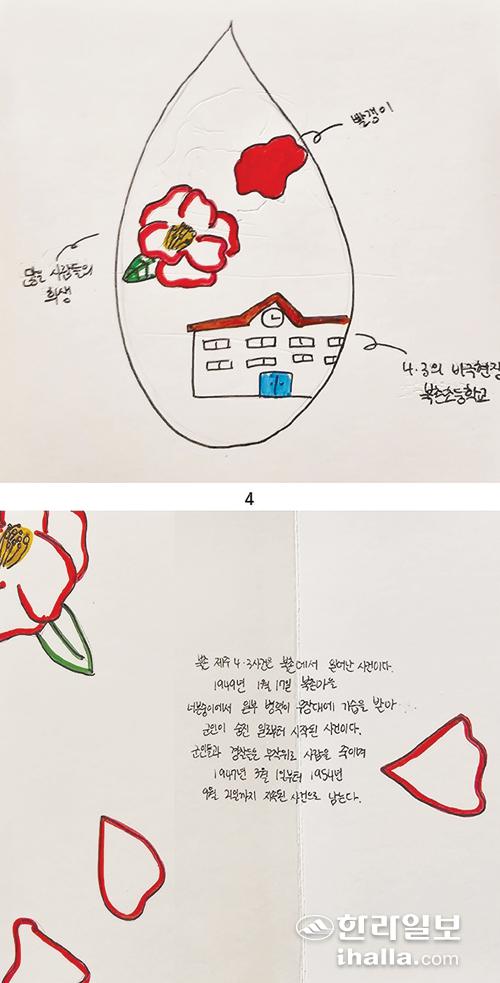 빨갱이
많은 사람들의
희생
4·3의 비극현장
북촌초등학교
4
북촌 제주 4·3사건은 북촌에서 일어난 사건이다.
1949년 1월 17일 북촌마을
너븐숭이에서 일부 병력이 무장대에 기습을 받아
군인이 숨진 일로부터 시작된 사건이다.
군인들과 경찰들은 무작위로 사람을 죽이며
1947년 3월 1일부터 1954년
9월 21일까지 지속된 사건으로 남는다.
한라일보
ihalla.com